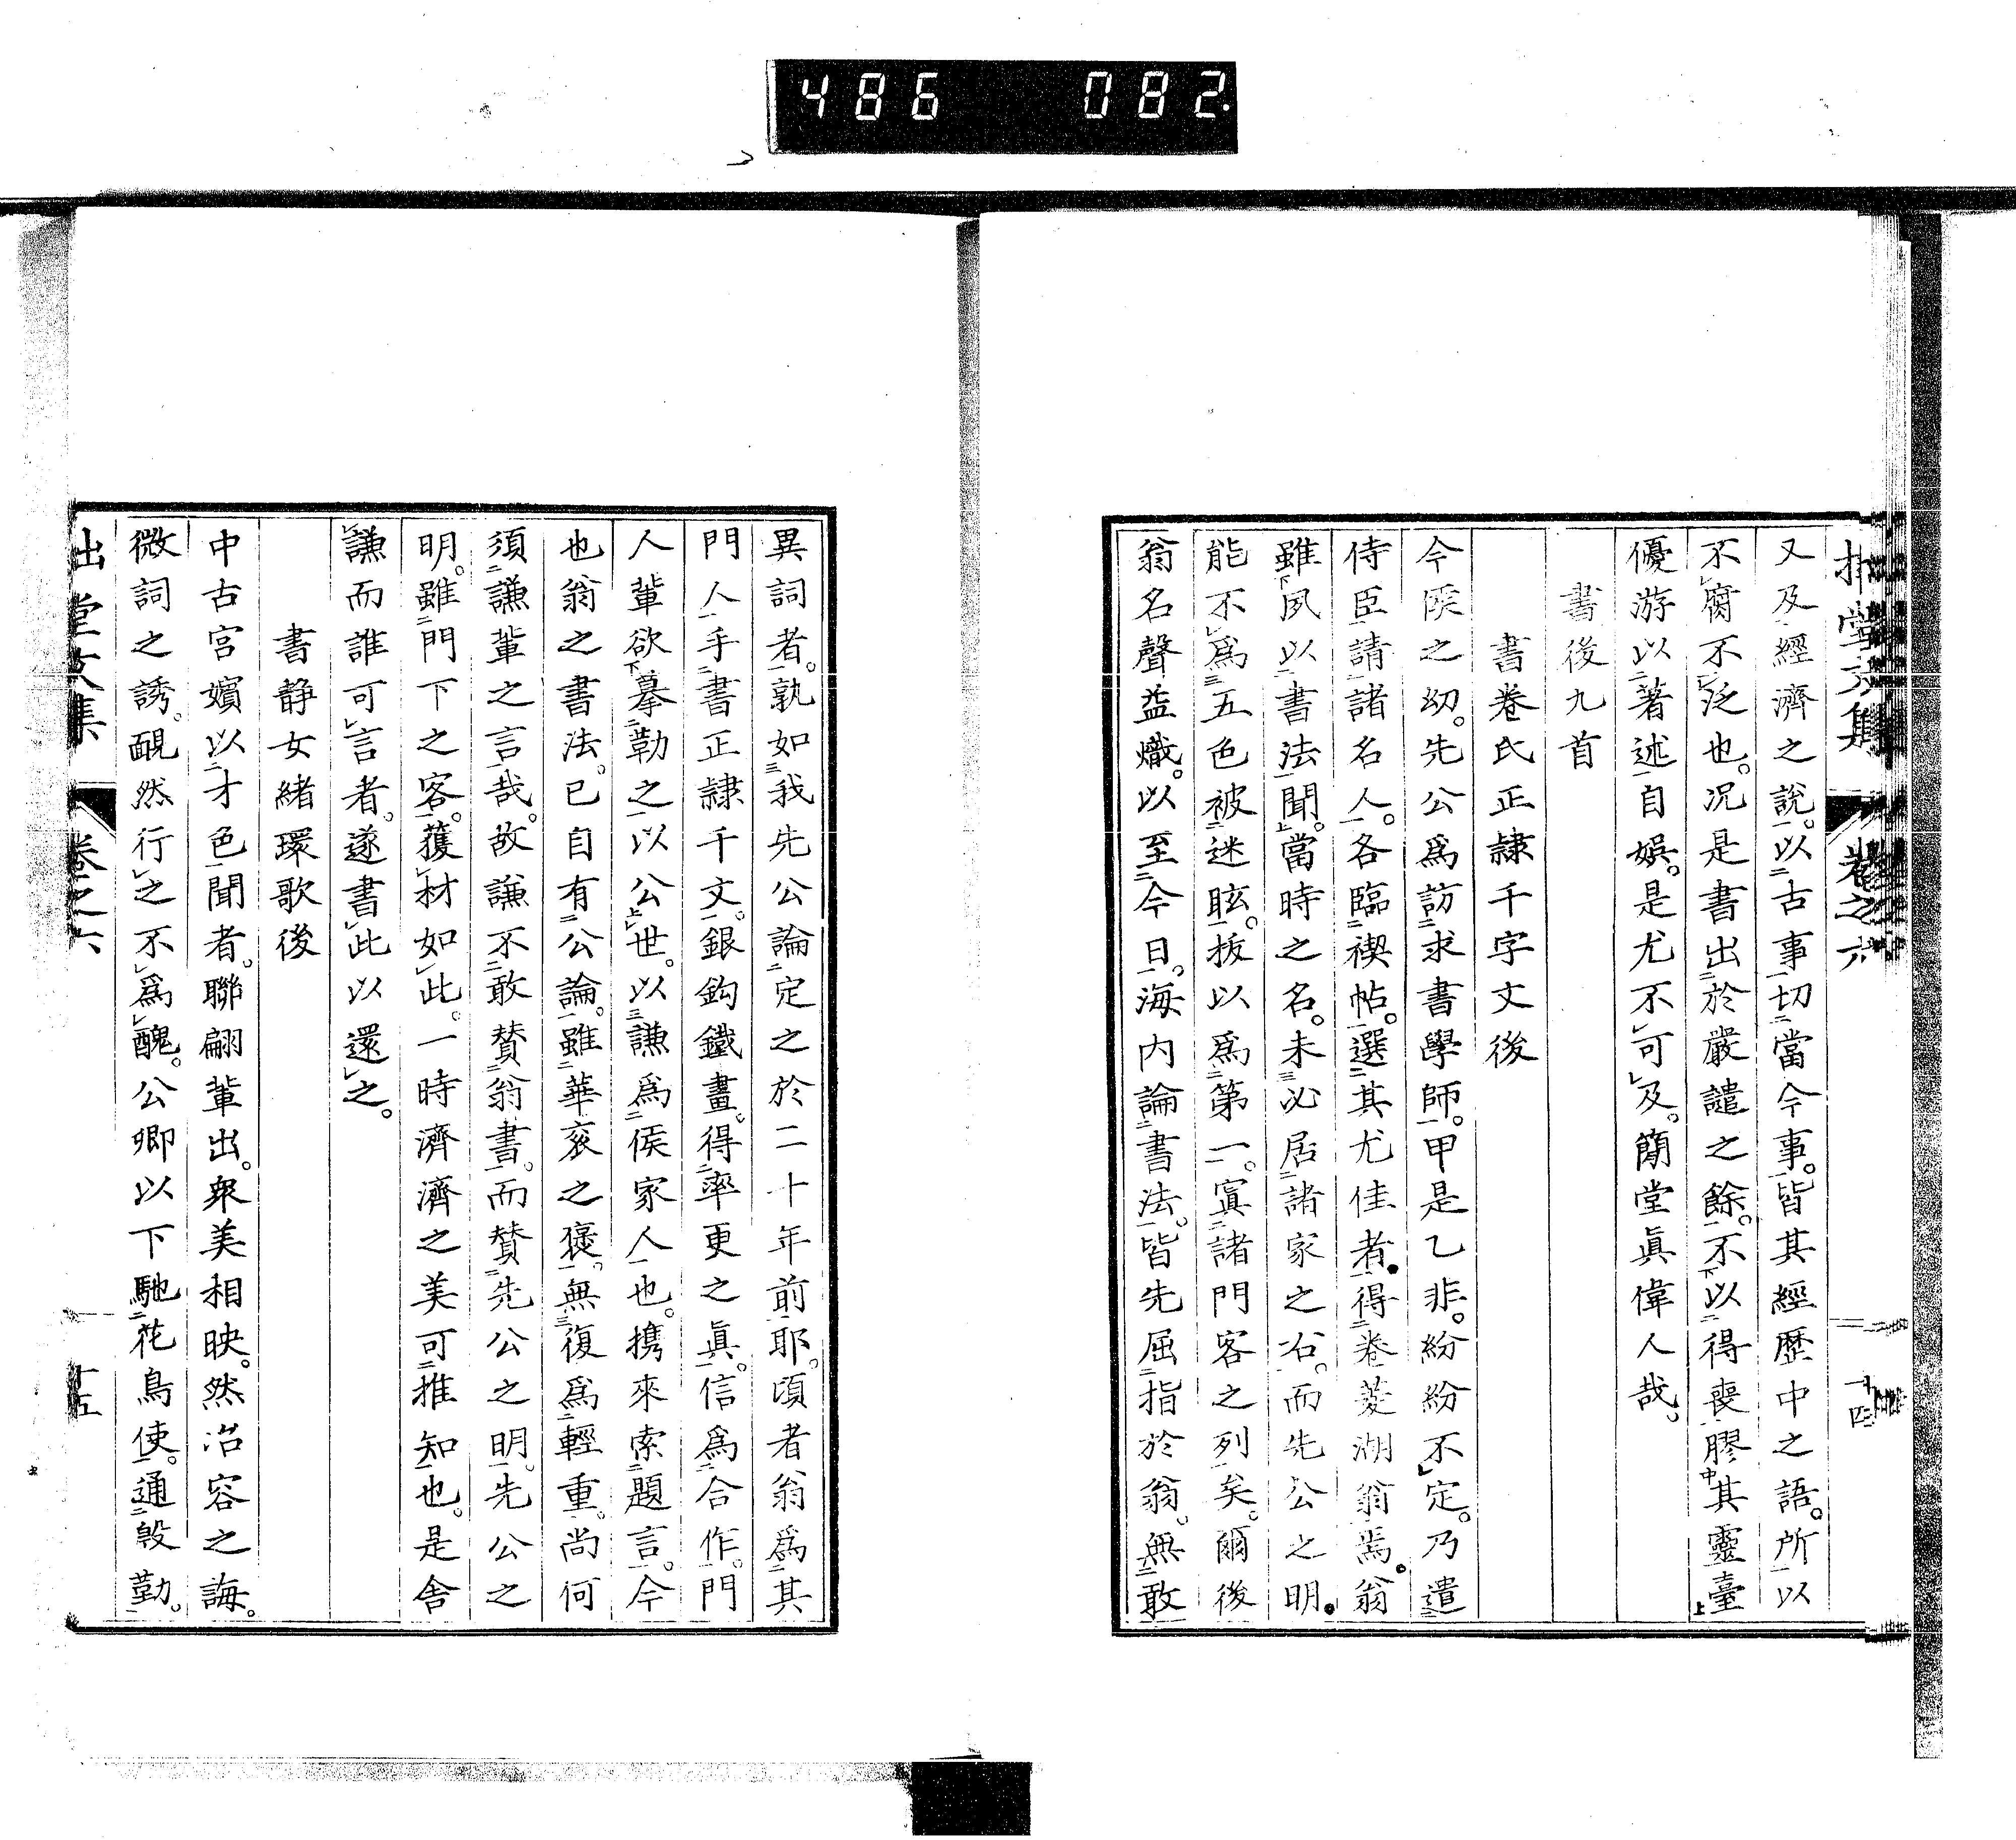 486 082
拙堂文集 卷之六 十四
又及經濟之說。以古事切當今事。皆其經歷中之語。所以
不腐不泛也。況是書出於嚴譴之餘。不以得喪膠其靈臺
優游以著述自娛。是尤不可及。簡堂眞偉人哉。
書後九首
書卷氏正隸千字文後
今侯之幼。先公爲訪求書學師。甲是乙非。紛紛不定。乃遣
侍臣請諸名人。各臨禊帖。選其尤佳者。得卷菱湖翁焉。翁
雖夙以書法聞。當時之名。未必居諸家之右。而先公之明。
能不爲五色被迷眩。拔以爲第一。寘諸門客之列矣。爾後
翁名聲益熾。以至今日。海內論書法。皆先屈指於翁。無敢
異詞者。孰如我先公論定之於二十年前耶。頃者翁爲其
門人手書正隸千文。銀鈎鐵畫。得率更之眞。信爲合作。門
人輩欲摹勒之以公世。以謙爲侯家人也。携來索題言。今
也翁之書法。已自有公論。雖華衮之褒。無復爲輕重。尚何
須謙輩之言哉。故謙不敢贊翁書。而贊先公之明。先公之
明。雖門下之客。獲材如此。一時濟濟之美可推知也。是舍
謙而誰可言者。遂書此以還之。
書靜女緖環歌後
中古宮嬪以才色聞者。聯翩輩出。衆美相映。然冶容之誨。
微詞之誘。靦然行之不爲醜。公卿以下馳花鳥使。通殷勤。
拙堂文集 卷之六 十五